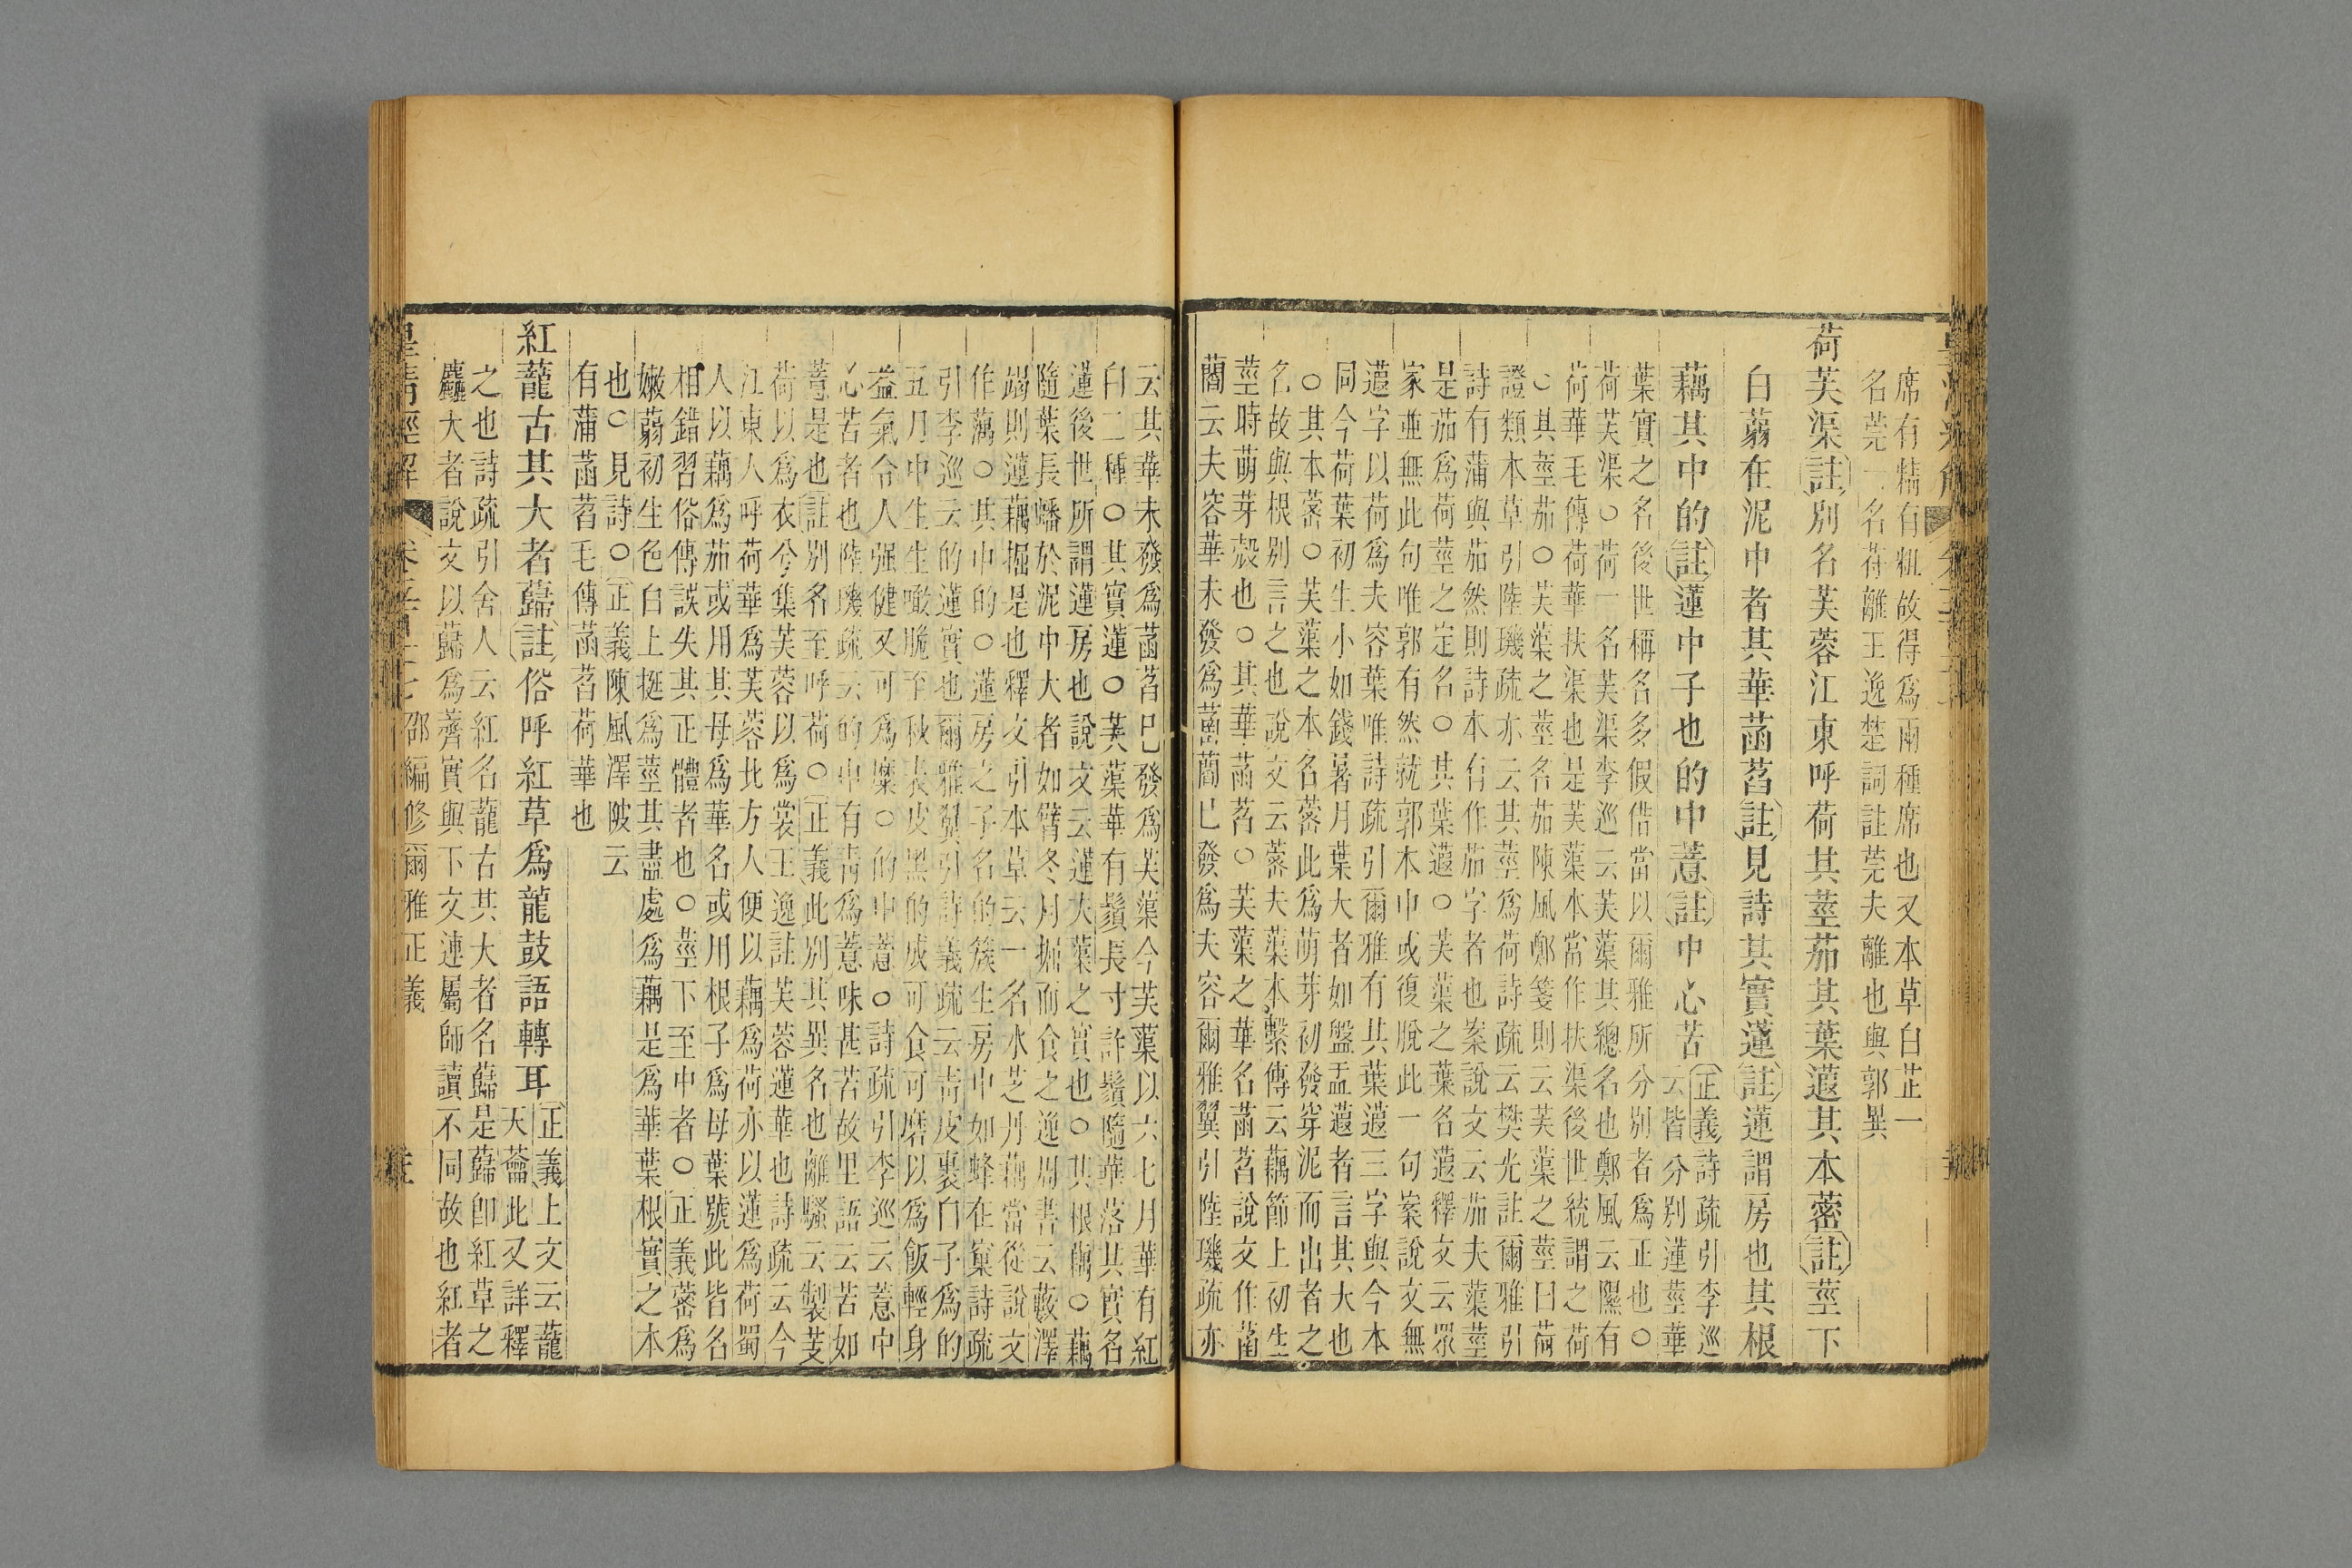 席有精有粗故得爲兩種席也又本草白芷一
名莞一名苻離王逸楚詞註莞夫離也與郭異
荷芙渠註別名芙蓉江東呼荷其莖茄其葉蕸其本蔤註莖下
白蒻在泥中者其華菡萏註見詩其實蓮註蓮謂房也其根
藕其中的註蓮中子也的中薏註中心苦
正義詩疏引李巡
云皆分別蓮莖華
葉實之名後世稱名多假借當以爾雅所分別者爲正也○
荷芙渠○荷一名芙渠李巡云芙蕖其總名也鄭風云隰有
荷華毛傳荷華扶渠也是芙蕖本當作扶渠後世統謂之荷
○其莖茄○芙蕖之莖名茄陳風鄭箋則云芙蕖之莖曰荷
證類本草引陸璣疏亦云其莖爲荷詩疏云樊光註爾雅引
詩有蒲與茄然則詩本有作茄字者也案說文云茄夫蕖莖
是茄爲荷莖之定名○其葉蕸○芙蕖之葉名蕸釋文云眾
家並無此句唯郭有然就郭本中或復脫此一句案說文無
蕸字以荷爲夫容葉唯詩疏引爾雅有其葉蕸三字與今本
同今荷葉初生小如錢暮月葉大者如盤盂蕸者言其大也
○其本蔤○芙蕖之本名蔤此爲萌芽初發穿泥而出者之
名故與根別言之也說文云蔤夫蕖本繫傳云藕節上初生
莖時萌芽殼也○其華菡萏○芙蕖之華名菡萏說文作菡
藺云夫容華未發爲菡藺已發爲夫容爾雅翼引陸璣疏亦
云其華未發爲菡萏已發爲芙蕖今芙蕖以六七月華有紅
白二種○其實蓮○芙蕖華有鬚長寸許鬚隨華落其實名
蓮後世所謂蓮房也說文云蓮夫蕖之實也○其根藕○藕
隨葉長蟠於泥中大者如臂冬月掘而食之逸周書云藪澤
竭則蓮藕掘是也釋文引本草云一名水芝丹藕當從說文
作蕅○其中的○蓮房之子名的的簇生房中如蜂在窠詩疏
引李巡云的蓮實也爾雅翼引詩義疏云青皮裏白子爲的
五月中生生噉脆至秋表皮黑的成可食可磨以爲飯輕身
益氣令人强健又可爲糜○的中薏○詩疏引李巡云薏中
心苦者也陸璣疏云的中有青爲薏味甚苦故里語云苦如
薏是也註別名至呼荷○正義此別其異名也離騷云製芰
荷以爲衣兮集芙蓉以爲裳王逸註芙蓉蓮華也詩疏云今
江東人呼荷華爲芙蓉北方人便以藕爲荷亦以蓮爲荷蜀
人以藕爲茄或用其母爲華名或用根子爲母葉號此皆名
相錯習俗傳誤失其正體者也○莖下至中者○正義蔤爲
嫩蒻初生色白上挺爲莖其盡處爲藕是爲華葉根實之本
也○見詩○正義陳風澤陂云
有蒲菡萏毛傳菡萏荷華也
紅蘢古其大者蘬註俗呼紅草爲龍鼓語轉耳
正義上文云蘢
天蘥此又詳釋
之也詩疏引舍人云紅名蘢古其大者名蘬是蘬卽紅草之
麤大者說文以蘬爲薺實與下文連屬師讀不同故也紅者
皇清經解
邵編修爾雅正義